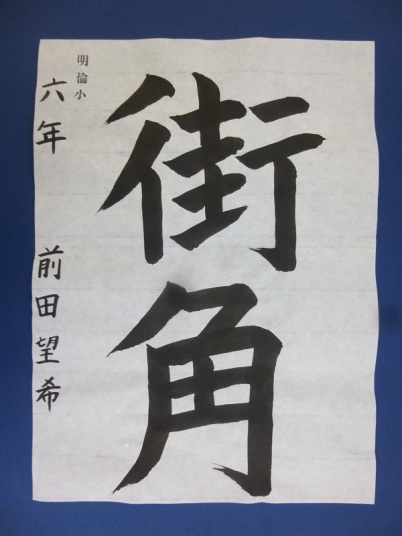 街角
明倫小
六年 前田望希